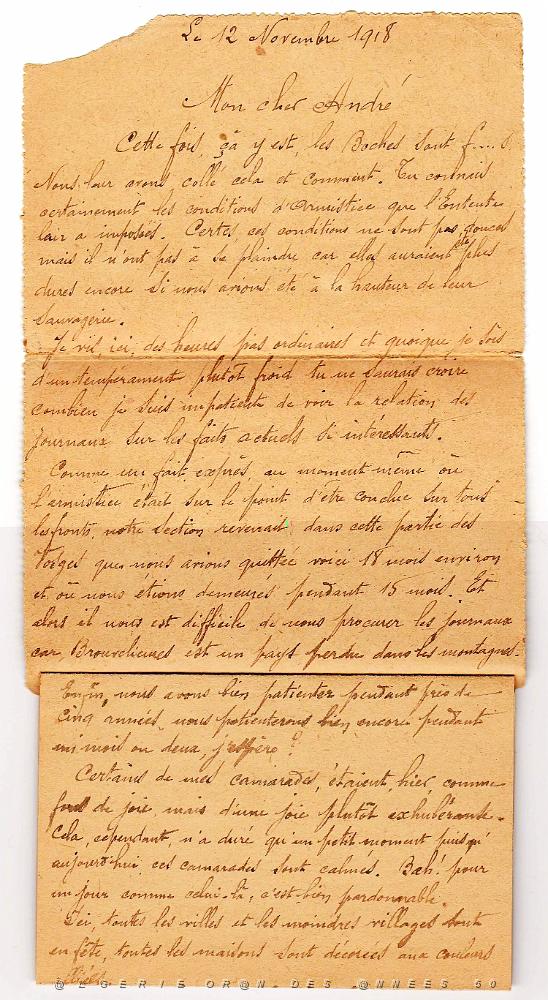 Le 12 Novembre 1918
Mon cher André
Cette fois, çà y est, les Boches sont f....s.
Nous leur avons collé cela et comment. Tu connais
certainement les conditions d'Armistice que l'Entente
leur a imposées. Certes ces conditions ne sont pas douces
mais il n'ont pas à se plaindre car elles auraient été plus
dures encore si nous avions été à la hauteur de leur
sauvagerie.
Je vis, ici, des heures pas ordinaires et quoique je sois
d'un tempérament plutôt froid tu ne saurais croire
combien je suis impatient de voir la relation des
journaux sur les faits actuels si intéressants.
Comme un fait exprès, au moment même où
l'armistice était sur le point d'être conclue sur tous
les fronts, notre section revenait dans cette partie des
Vosges que nous avions quittée voici 18 mois environ
et où nous étions demeurés pendant 15 mois. Et
alors il nous est difficile de nous procurer les journaux
car, Brouvelieures est un pays perdu dans les montagnes.
Enfin, nous avons bien patienter pendant près de
cinq années, nous patienterons bien encore pendant
un mois ou deux, j'espère ?
Certains de mes camarades, étaient, hier, comme
fous de joie, mais d'une joie plutôt exhubérante.
Cela, cependant, n'a duré qu'un petit moment puisqu'
aujourd'hui ces camarades sont calmés. Bah! pour
un jour comme celui-là, c'est bien pardonnable.
Ici, toutes les villes et les moindres villages sont
en fête, toutes les maisons sont décorées aux couleurs
alliées.